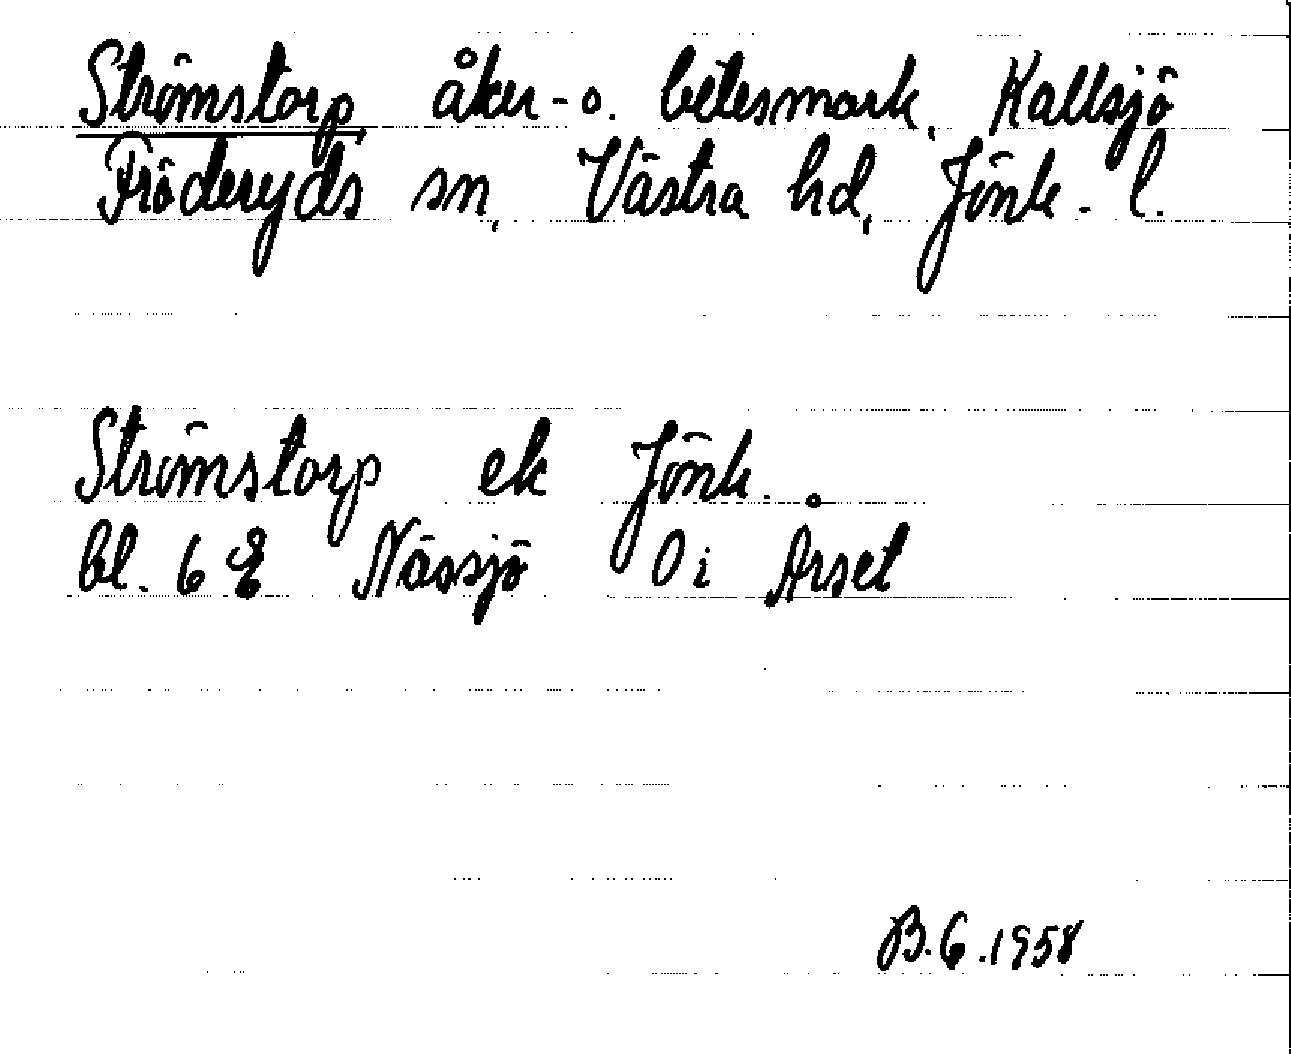 Strömstorp, åker- o. betesmark, Kallsjö
Fröderyds sn, Västra hd, Jönk. l.
Strömstorp ek Jönk.
bl. 6 E Nässjö 0 i Årset
B.G.1958